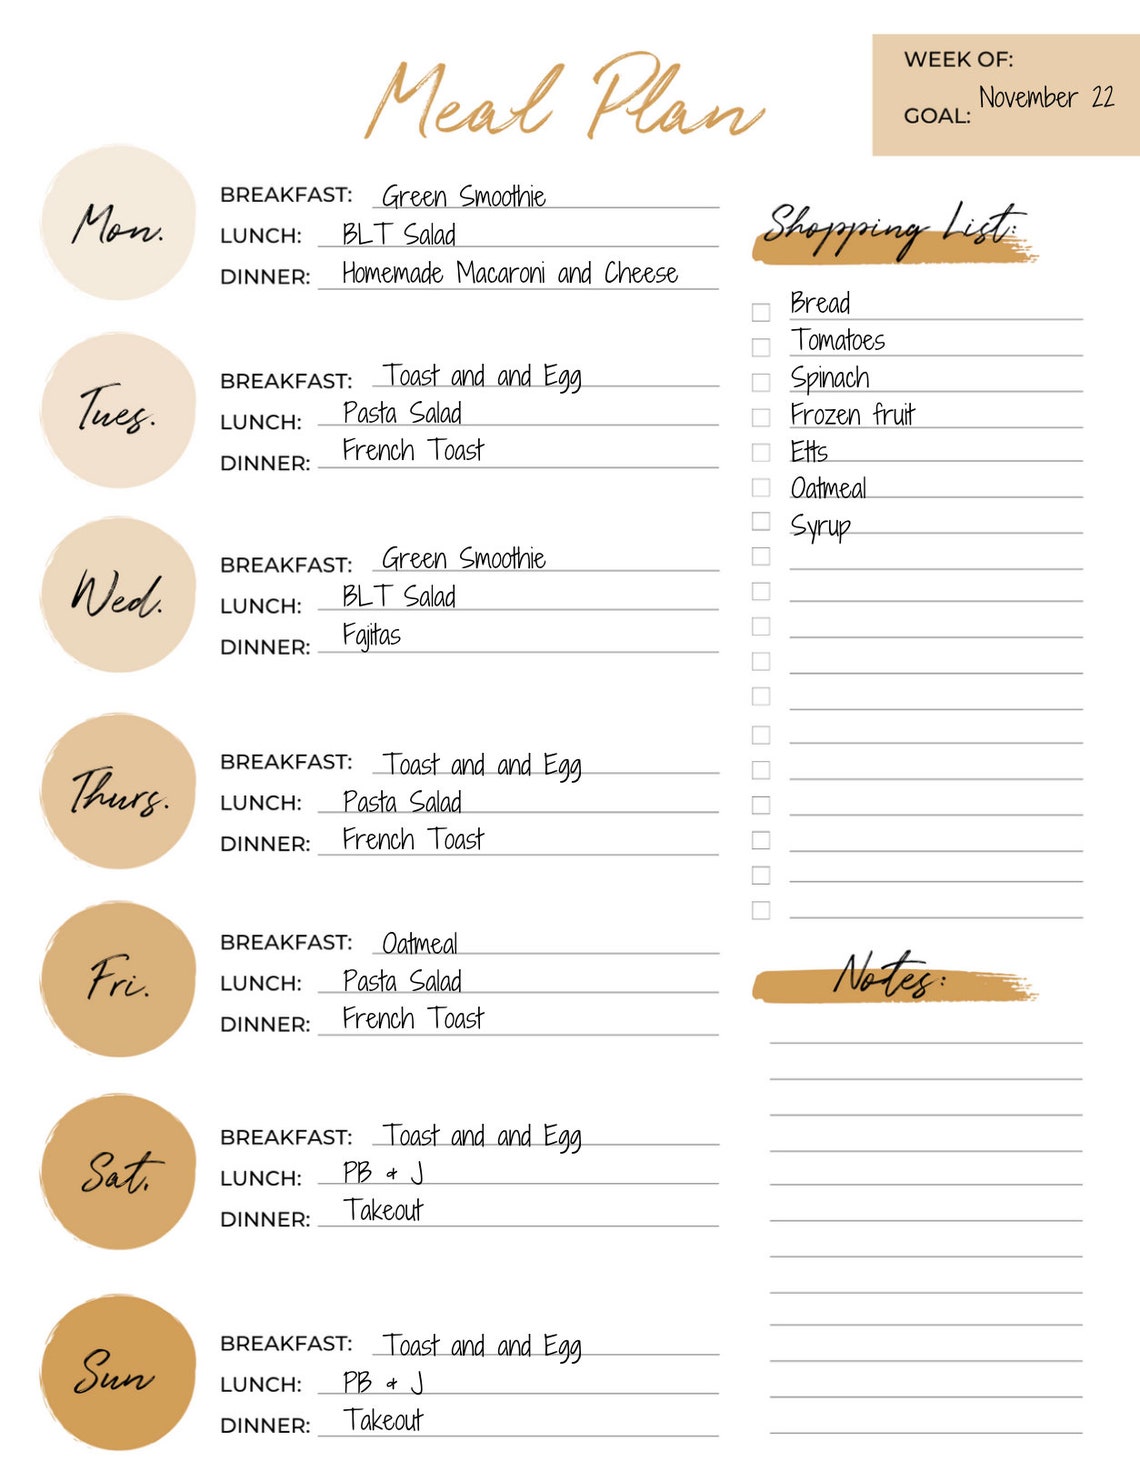 Meal Plan
WEEK OF:
November 22
GOAL:
Mon.
BREAKFAST: Green Smoothie
LUNCH: BLT Salad
DINNER: Homemade Macaroni and Cheese
Tues.
BREAKFAST: Toast and and Egg
LUNCH: Pasta Salad
DINNER: French Toast
Wed.
BREAKFAST: Green Smoothie
LUNCH: BLT Salad
DINNER: Fajitas
Thurs.
BREAKFAST: Toast and and Egg
LUNCH: Pasta Salad
DINNER: French Toast
Fri.
BREAKFAST: Oatmeal
LUNCH: Pasta Salad
DINNER: French Toast
Sat.
BREAKFAST: Toast and and Egg
LUNCH: PB & J
DINNER: Takeout
Sun
BREAKFAST: Toast and and Egg
LUNCH: PB & J
DINNER: Takeout
Shopping List:
Bread
Tomatoes
Spinach
Frozen fruit
Etts
Oatmeal
Syrup
Notes: